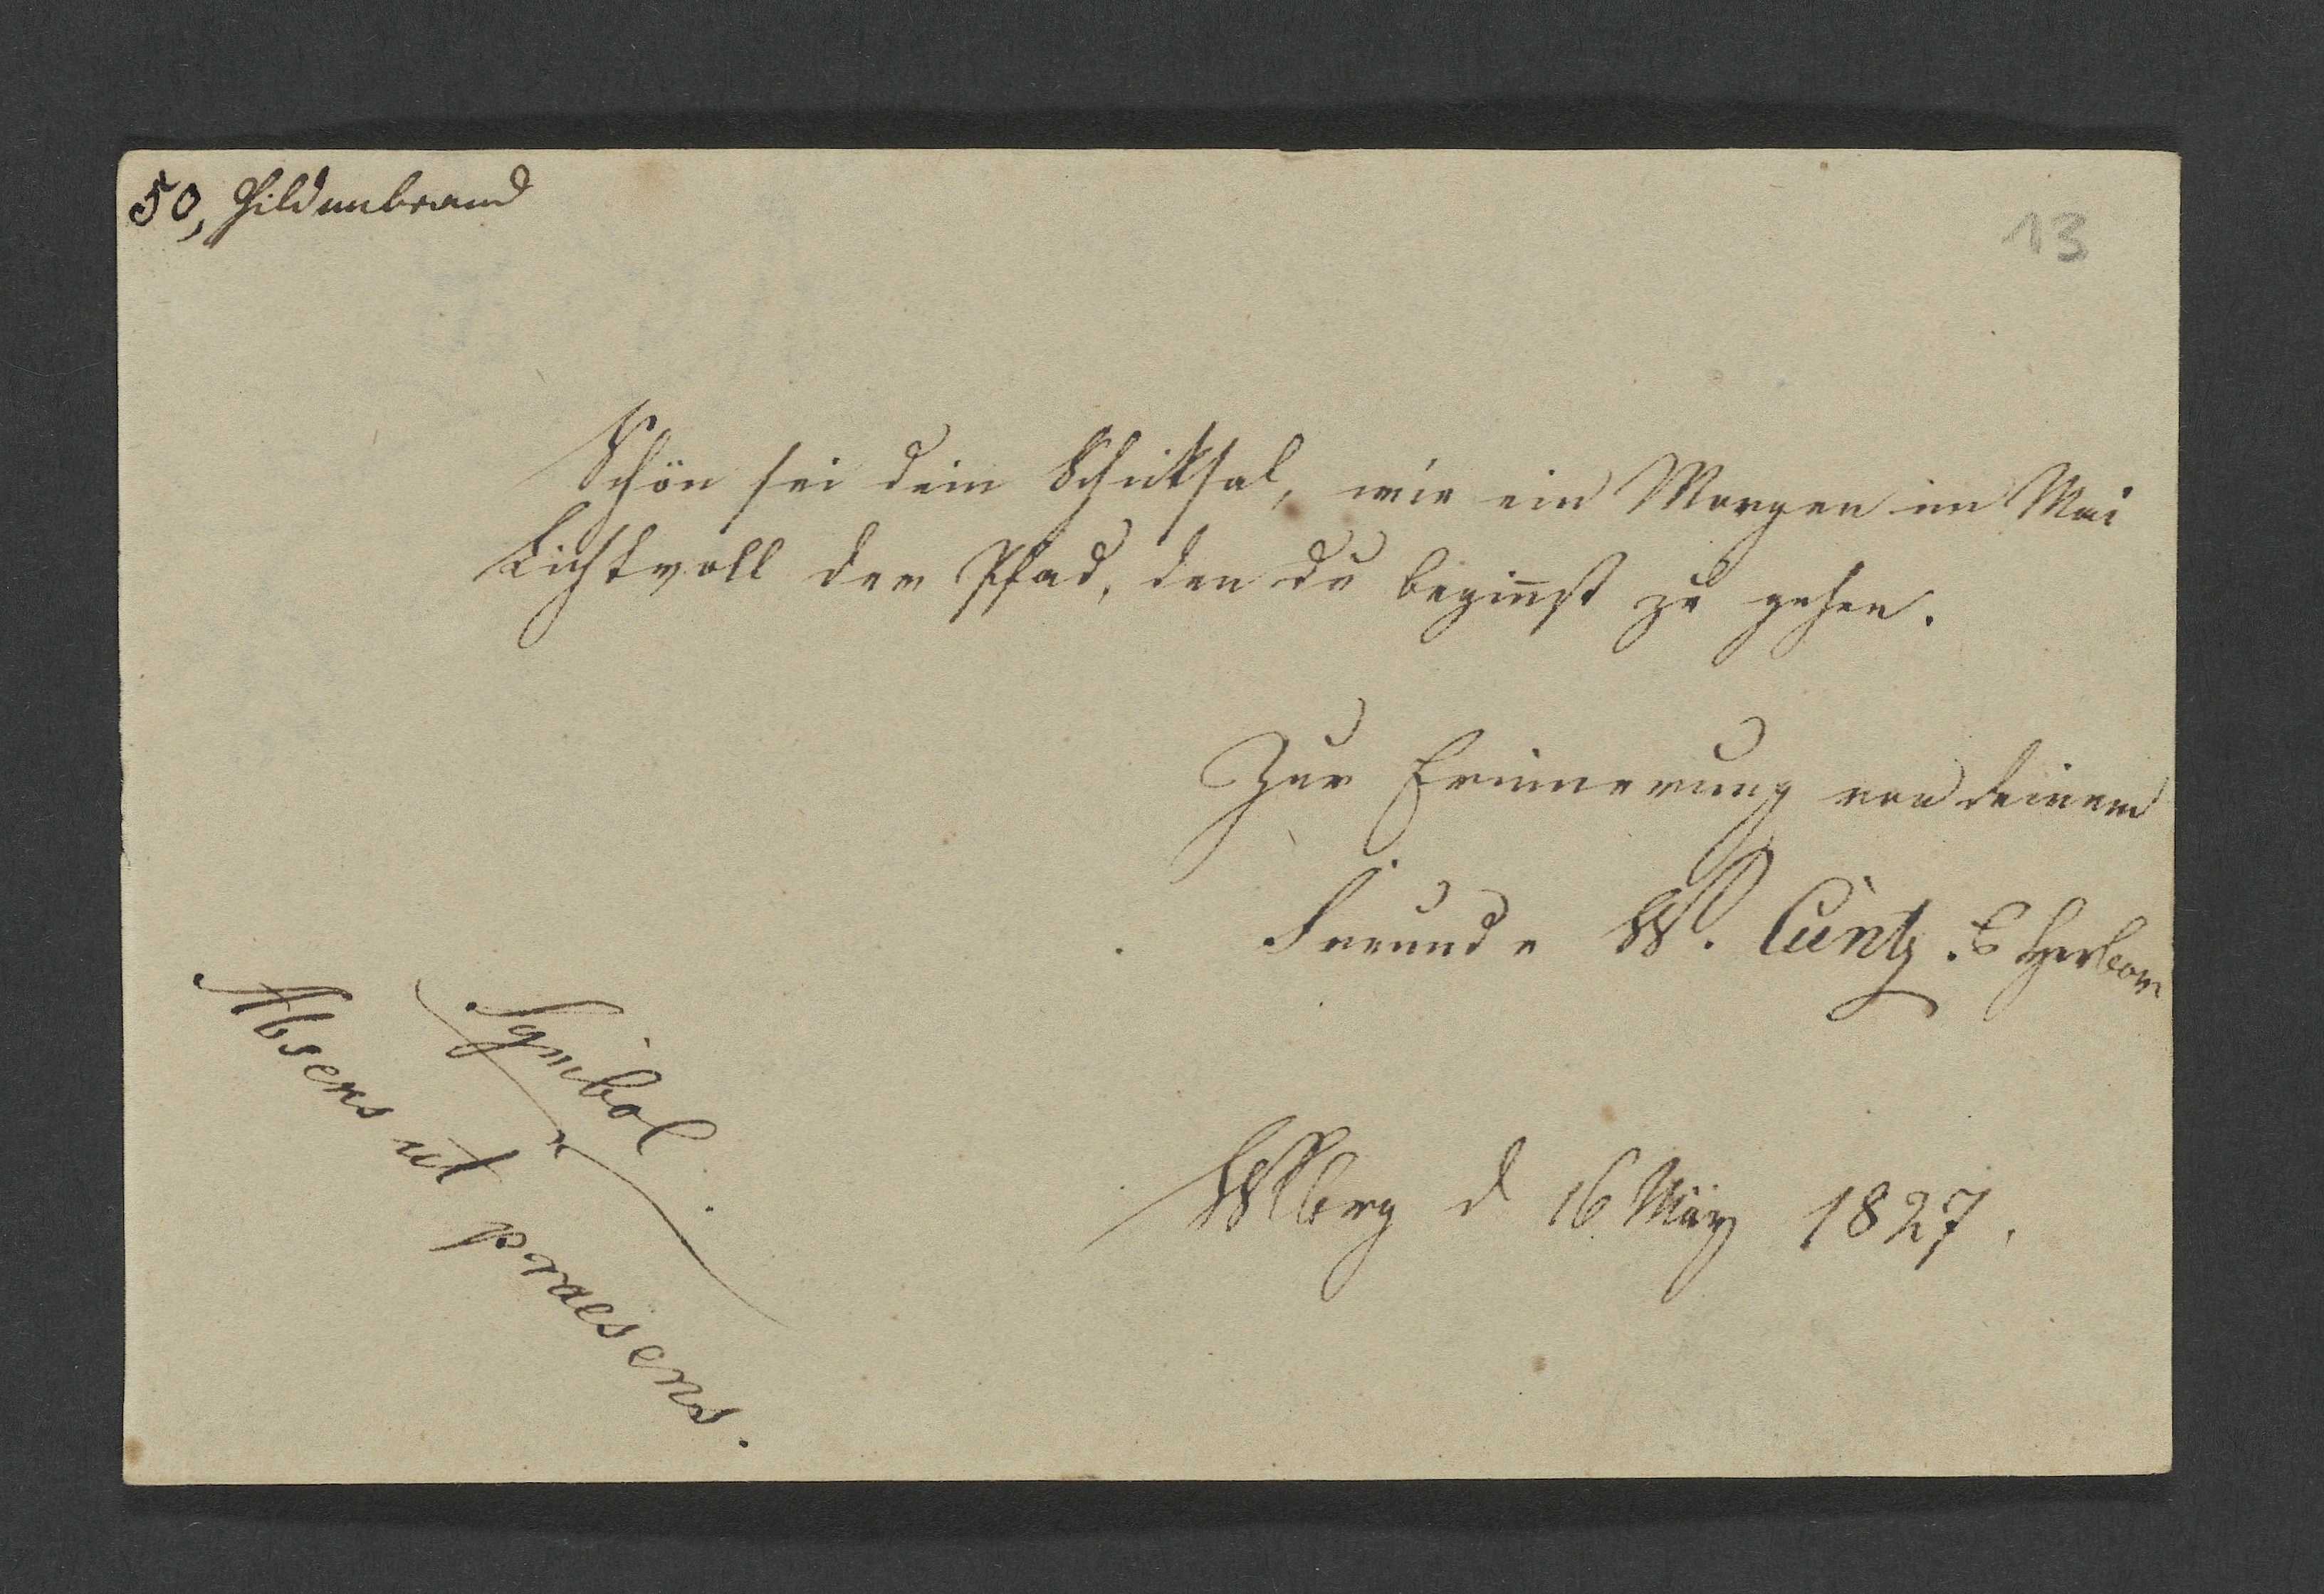 50, Hildenbrand
13
Schön sei dein Schiksal, wie ein Morgen im Mai
Lichtvoll der Pfad, den du begin̅st zu gehen.
Zur Erinnerung von deinem
Freunde W. Cuntz. Herborn
Symbol.
Absens ut praesens.
Wlbrg d 16 März 1827.